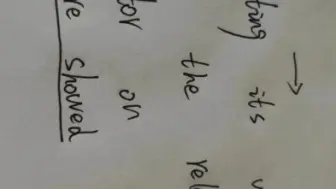 ting its
the
tor on
re showed